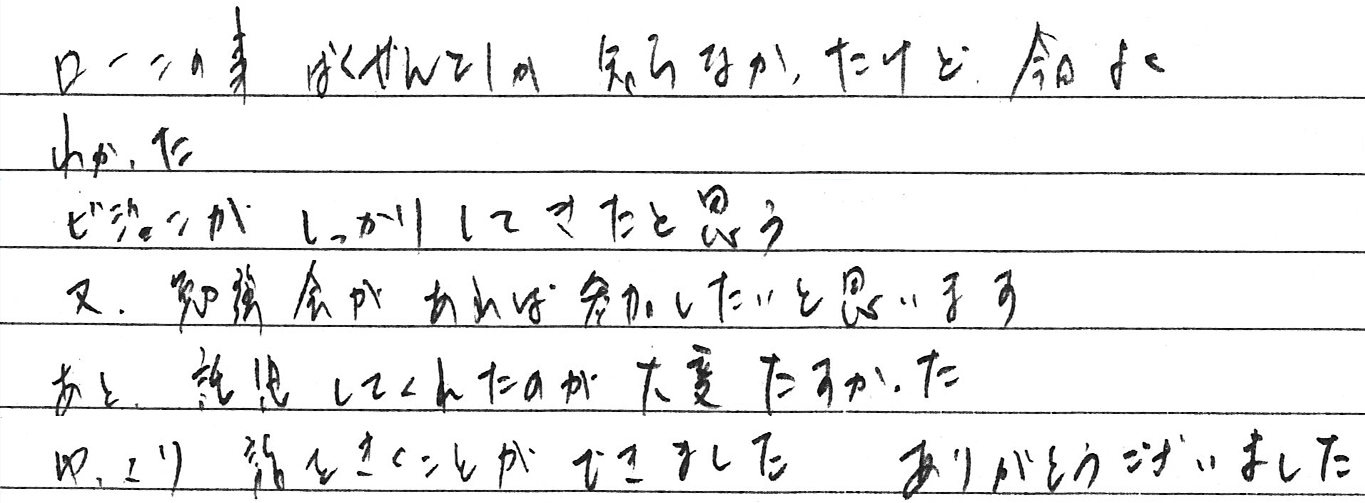 ローンの事 ばくぜんでしか 知らなかったけど、今日よく
わかった
ビジョンが しっかりしてきたと思う
又、勉強会が あれば参加したいと思います
あと、託児してくれたのが 大変 たすかった
ゆっくり 話をきくことが できました ありがとうございました